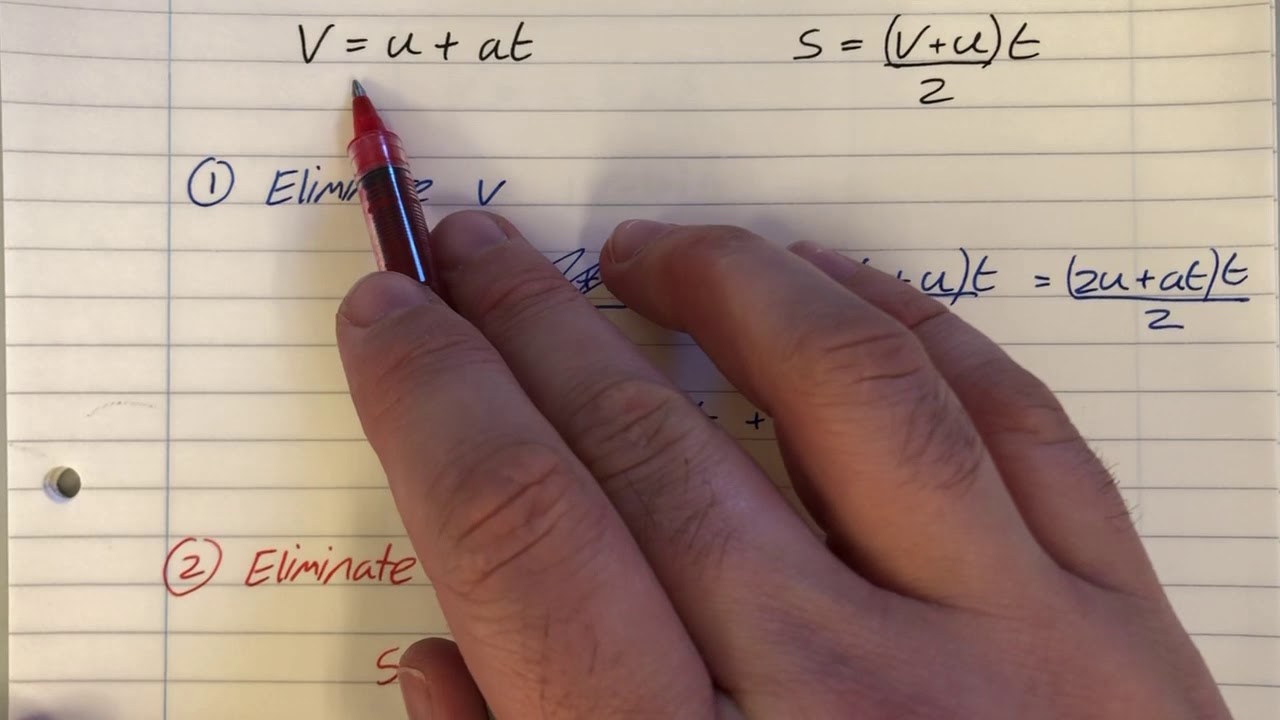 V = u + at
S = (V+u)t / 2
① Eliminate v
u)t = (2u+at)t / 2
+
② Eliminate
S